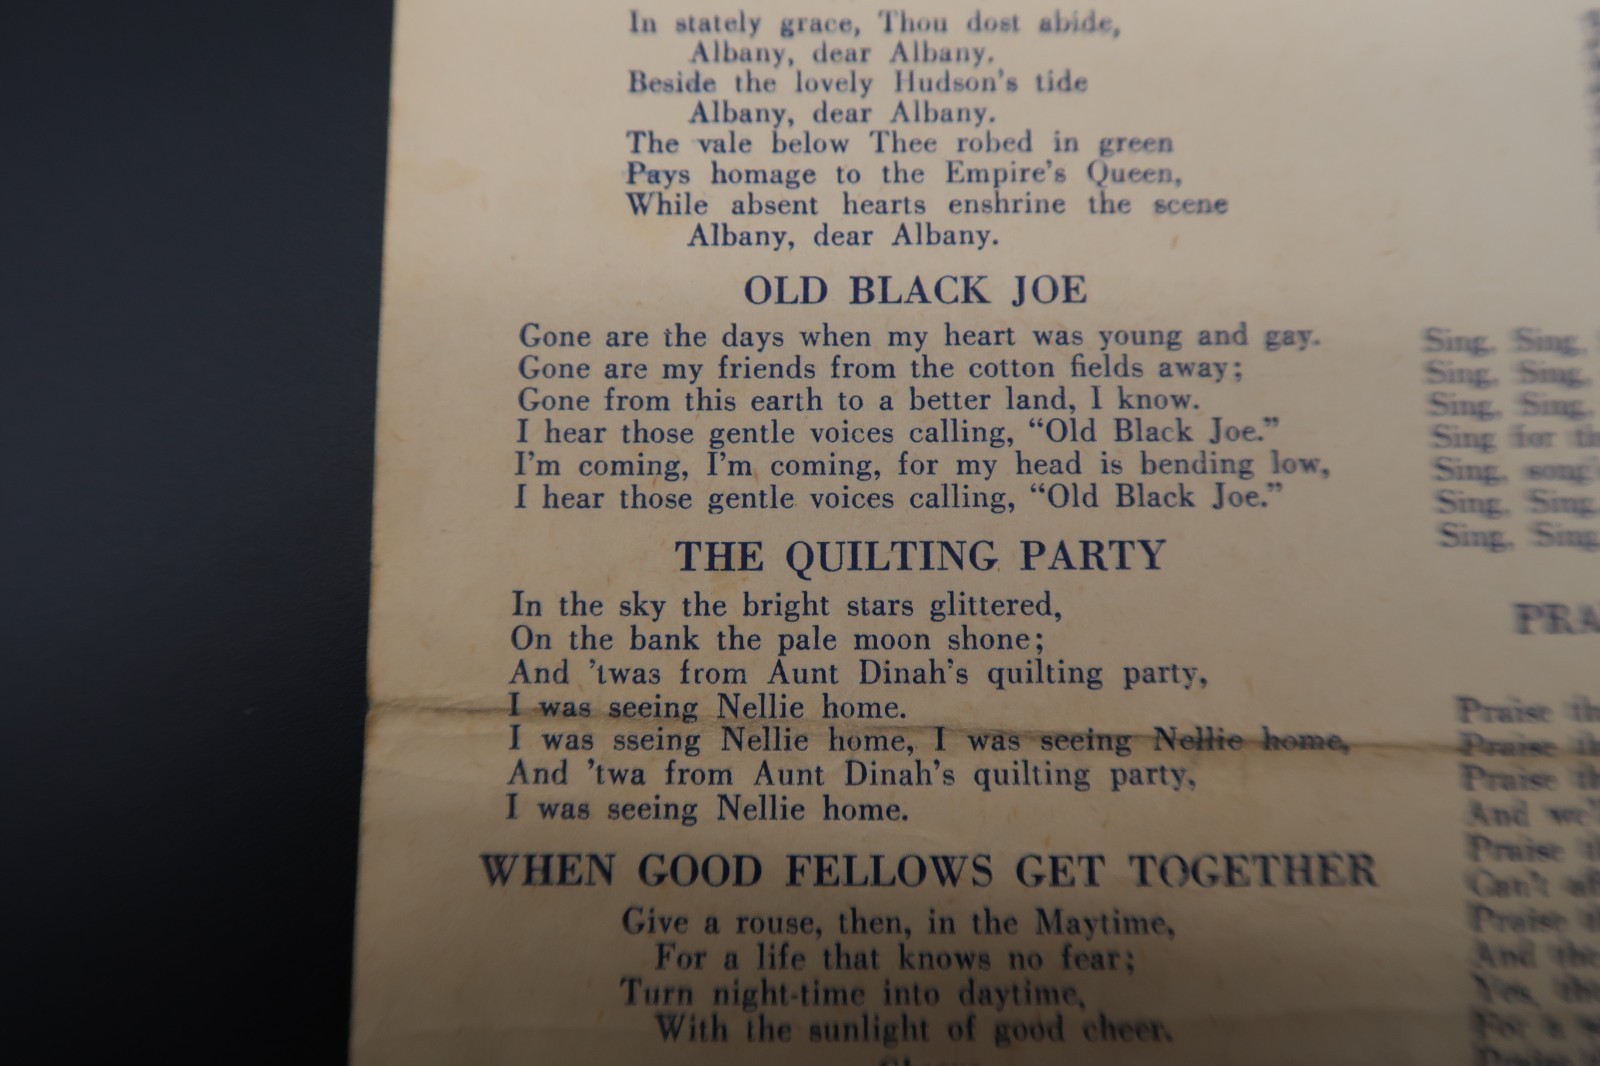 In stately grace, Thou dost abide,
Albany, dear Albany.
Beside the lovely Hudson's tide
Albany, dear Albany.
The vale below Thee robed in green
Pays homage to the Empire's Queen,
While absent hearts enshrine the scene
Albany, dear Albany.
OLD BLACK JOE
Gone are the days when my heart was young and gay.
Gone are my friends from the cotton fields away;
Gone from this earth to a better land, I know.
I hear those gentle voices calling, “Old Black Joe.”
I'm coming, I'm coming, for my head is bending low,
I hear those gentle voices calling, “Old Black Joe.”
THE QUILTING PARTY
In the sky the bright stars glittered,
On the bank the pale moon shone;
And 'twas from Aunt Dinah's quilting party,
I was seeing Nellie home.
I was sseing Nellie home, I was seeing Nellie home,
And 'twa from Aunt Dinah's quilting party,
I was seeing Nellie home.
WHEN GOOD FELLOWS GET TOGETHER
Give a rouse, then, in the Maytime,
For a life that knows no fear;
Turn night-time into daytime,
With the sunlight of good cheer.
Sing, Sing,
Sing, Sing,
Sing, Sing,
Sing for
Sing,
Sing, Sing,
Sing, Sing,
Praise
Praise
Praise
And
Praise
Can't
Praise
And
Yes,
For a
Praise